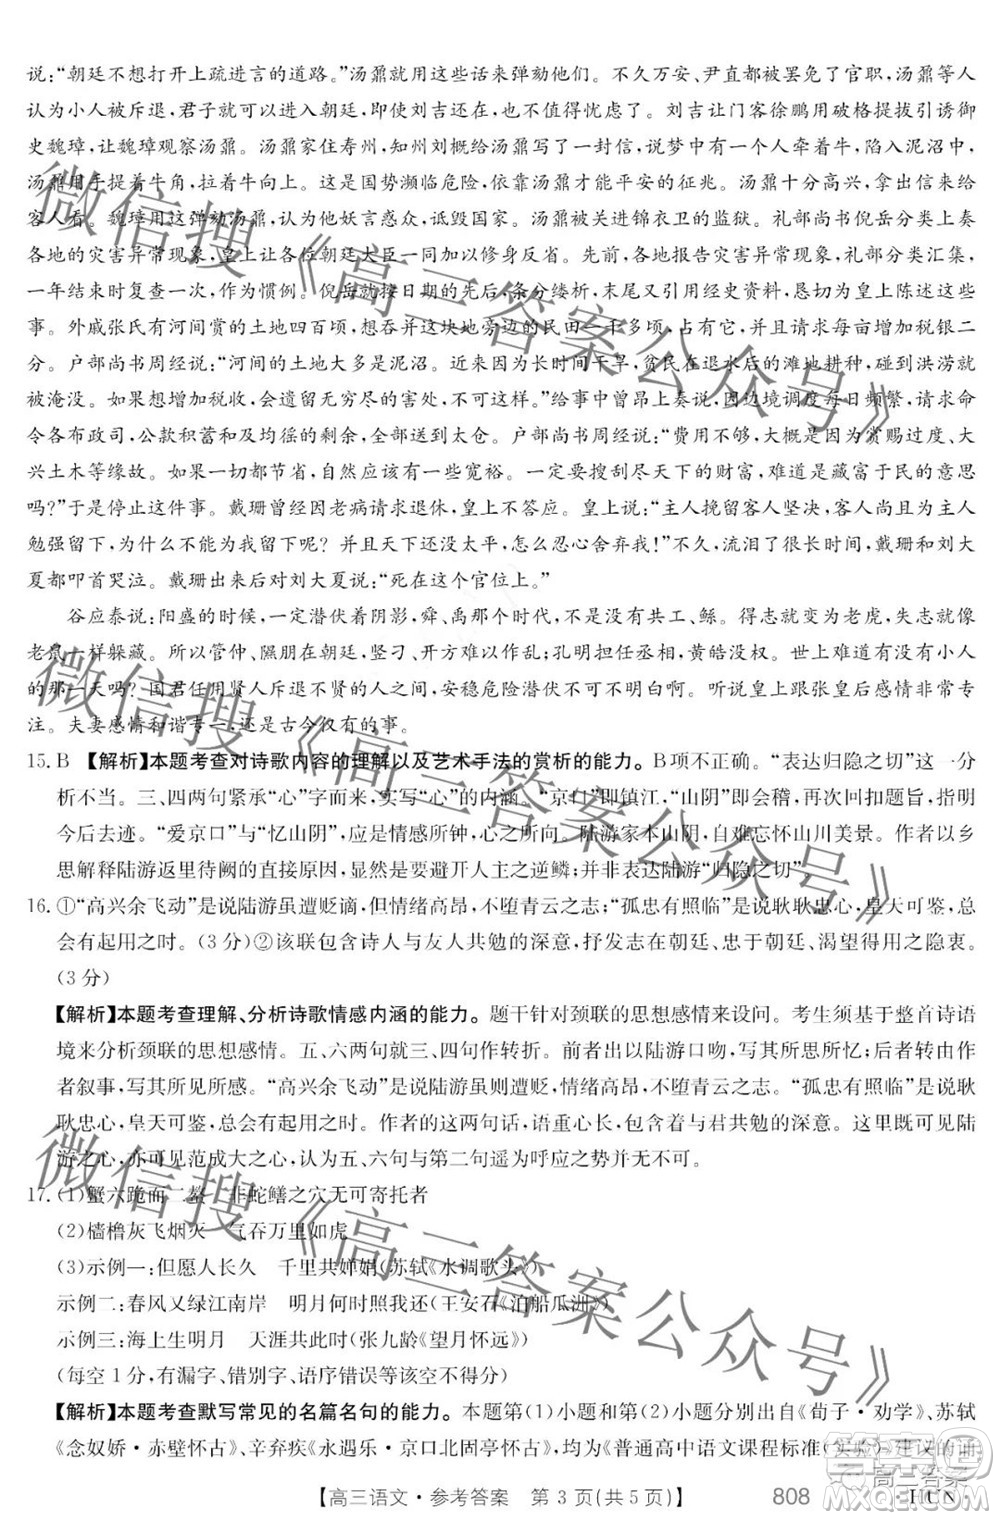 说：“朝廷不想打开上疏进言的道路。”汤鼐用这些话来弹劾他们。不久万安、尹直都被罢免了官职，汤鼐等人
认为小人被斥退，君子就会进入朝廷，即使刘吉还在，也不值得忧虑了。刘吉让门客徐鹏用破格提拔引诱御
史魏璋，让魏璋观察汤鼐。汤鼐家住寿州，知州刘概给汤鼐写了一封信，说梦中有一个人牵着牛，陷入泥沼中，
汤鼐用手提着牛角，拉着牛回来。这是国势濒临危险，依靠汤鼐才能平安的征兆。汤鼐十分高兴，拿出信来给
客人看。魏璋用这弹劾汤鼐，认为他妖言惑众，诋毁国家。汤鼐被关进锦衣卫的监狱。礼部尚书倪岳分类上奏
各地的灾害异常现象，希望与各位朝廷大臣一同加以修身反省。此前，各地报告灾害异常现象，礼部分类概括，
一年结束时复查一次，作为惯例。倪岳按着日期的先后，条分缕析，末尾又引用经史资料，恳切为皇上陈述这些
事。外戚张氏有河间赏的土地四百顷，想吞并附近的民田一千多顷，占有它，并且请求每亩增加税银二
分。户部尚书周经说：“河间的土地大多是泥沼。近来因干旱，贫民在退水后的滩地耕种，碰到洪涝就
被淹没。如果认为可以增加税收，就会造成无穷尽的害处。”给事中曾昂上奏说，因边境调度每日频繁，请求命
令各布政司，公款积蓄和及均徭的剩余，全部送到太仓。户部尚书周经说：“费用不够，大概是因为赏赐过度、大
兴土木等缘故。假使一切都节省，自然应该有一些宽裕。一定要搜刮尽天下的财富，难道是藏富于民的意思
吗？”于是停止这件事。戴珊曾经因老病请求退休，皇上不答应。皇上说：“主人挽留客人坚决，客人尚且为主人
勉强留下，为什么不能为我留下呢？并且天下还没太平，怎忍心舍弃我！”不久，流泪了很长时间，戴珊和刘大
夏都叩首哭泣。戴珊出来后对刘大夏说：“死在这个官位上。”
谷应泰说：阳盛的时候，一定潜伏着阴影，舜、禹那个时代，不是没有共工、鲧。得志就会变为老虎，失志就像
老鼠一样躲藏。所以管仲、隰朋执政，竖刁、易牙潜伏；孔明担任丞相，黄皓绝迹。世上难道有没有小人
的那一天吗？国君任用贤人斥退不贤的人，安稳危险潜伏不可不明白啊。听说皇上跟张皇后感情非常专
注。夫妻感情和谐专一，还是古今仅有的事。
15. B 【解析】本题考查对诗歌内容的理解以及艺术手法的赏析的能力。B项不正确。“表达归隐之切”这一分
析不当。三、四两句紧承“心”字而来，实写“心”的内涵。“京口”即镇江，“山阴”即会稽，为地名对，指明
今后去迹。“爱京口”与“忆山阴”，应是情感所钟，心之所向。陆游家本山阴，自难忘怀山川美景。作者以乡
思解释陆游返里待阙的直接原因，是为了要避开人主之逆鳞，并非表达陆游“归隐之切”。
16. ①“高兴余飞动”是说陆游虽遭贬谪，但情绪高昂，不堕青云之志；“孤忠有照临”是说耿耿忠心，皇天可鉴，总
会有起用之时。（3分）②该联包含诗人与友人共勉的深意，抒发志在朝廷、忠于朝廷、渴望得用之隐衷。
（3分）
【解析】本题考查理解、分析诗歌情感内涵的能力。题干针对颈联的思想感情来设问。考生须基于整首诗语
境来分析颈联的思想感情。五、六两句就三、四句作转折。全以陆游口吻，写其所思所忆；同时又有作者
叙事，写其所感。“高兴余飞动”是说陆游虽则遭贬，情绪高昂，不堕青云之志。“孤忠有照临”是说耿
耿忠心，皇天可鉴，总会有起用之时。作者的这两句话，语重心长，包含有与君共勉的深意。此外，还可见陆
游之心，亦可见范公之心，认为五、六句与第二句遥为呼应之势并无不可。
17. （1）蟹六跪而二螯 非蛇鳝之穴无可寄托者
（2）樯橹灰飞烟灭 气吞万里如虎
（3）示例一：但愿人长久 千里共婵娟（苏轼《水调歌头》）
示例二：春风又绿江南岸 明月何时照我还（王安石《泊船瓜洲》）
示例三：海上生明月 天涯共此时（张九龄《望月怀远》）
（每空1分，有漏字、错别字、语序错误等该空不得分）
【解析】本题考查默写常见的名篇名句的能力。本题第（1）小题和第（2）小题分别出自《荀子·劝学》、苏轼
《念奴娇·赤壁怀古》、辛弃疾《永遇乐·京口北固亭怀古》，均为《普通高中语文课程标准（实验）》建议的诵
【高三语文·参考答案 第3页（共5页）】 808 ·HCN·
微信搜《高三答案公众号》
微信搜《高三答案公众号》
微信搜《高三答案公众号》
高三答案